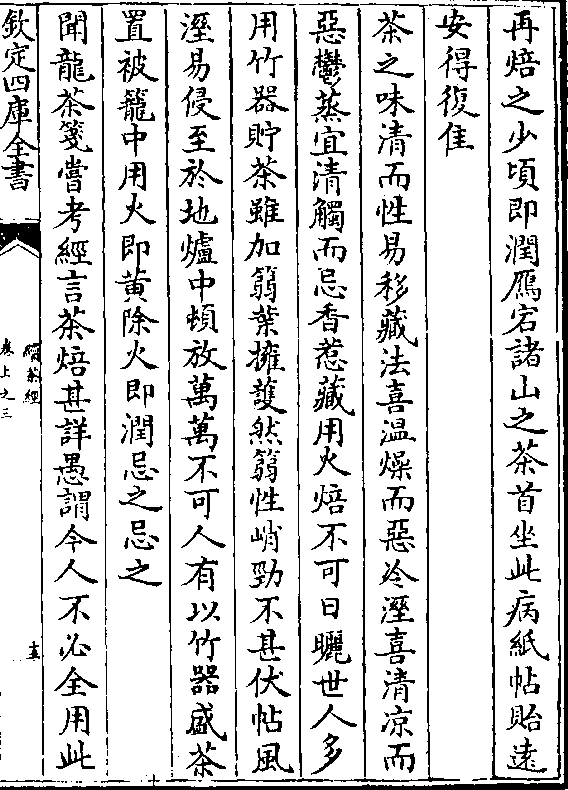 再焙之少頃即潤鴈宕諸山之茶首坐此病紙帖貽遠
安得復佳
茶之味清而性易移藏法喜溫燥而惡冷溼喜清凉而
惡鬱蒸宜清觸而忌香惹藏用火焙不可日曬世人多
用竹器貯茶雖加篛葉擁護然篛性峭勁不甚伏帖風
溼易侵至於地爐中頓放萬萬不可人有以竹器盛茶
置被籠中用火即黄除火即潤忌之忌之
聞龍茶箋嘗考經言茶焙甚詳愚謂今人不必全用此
欽定四庫全書
續茶經
卷上之三
十五